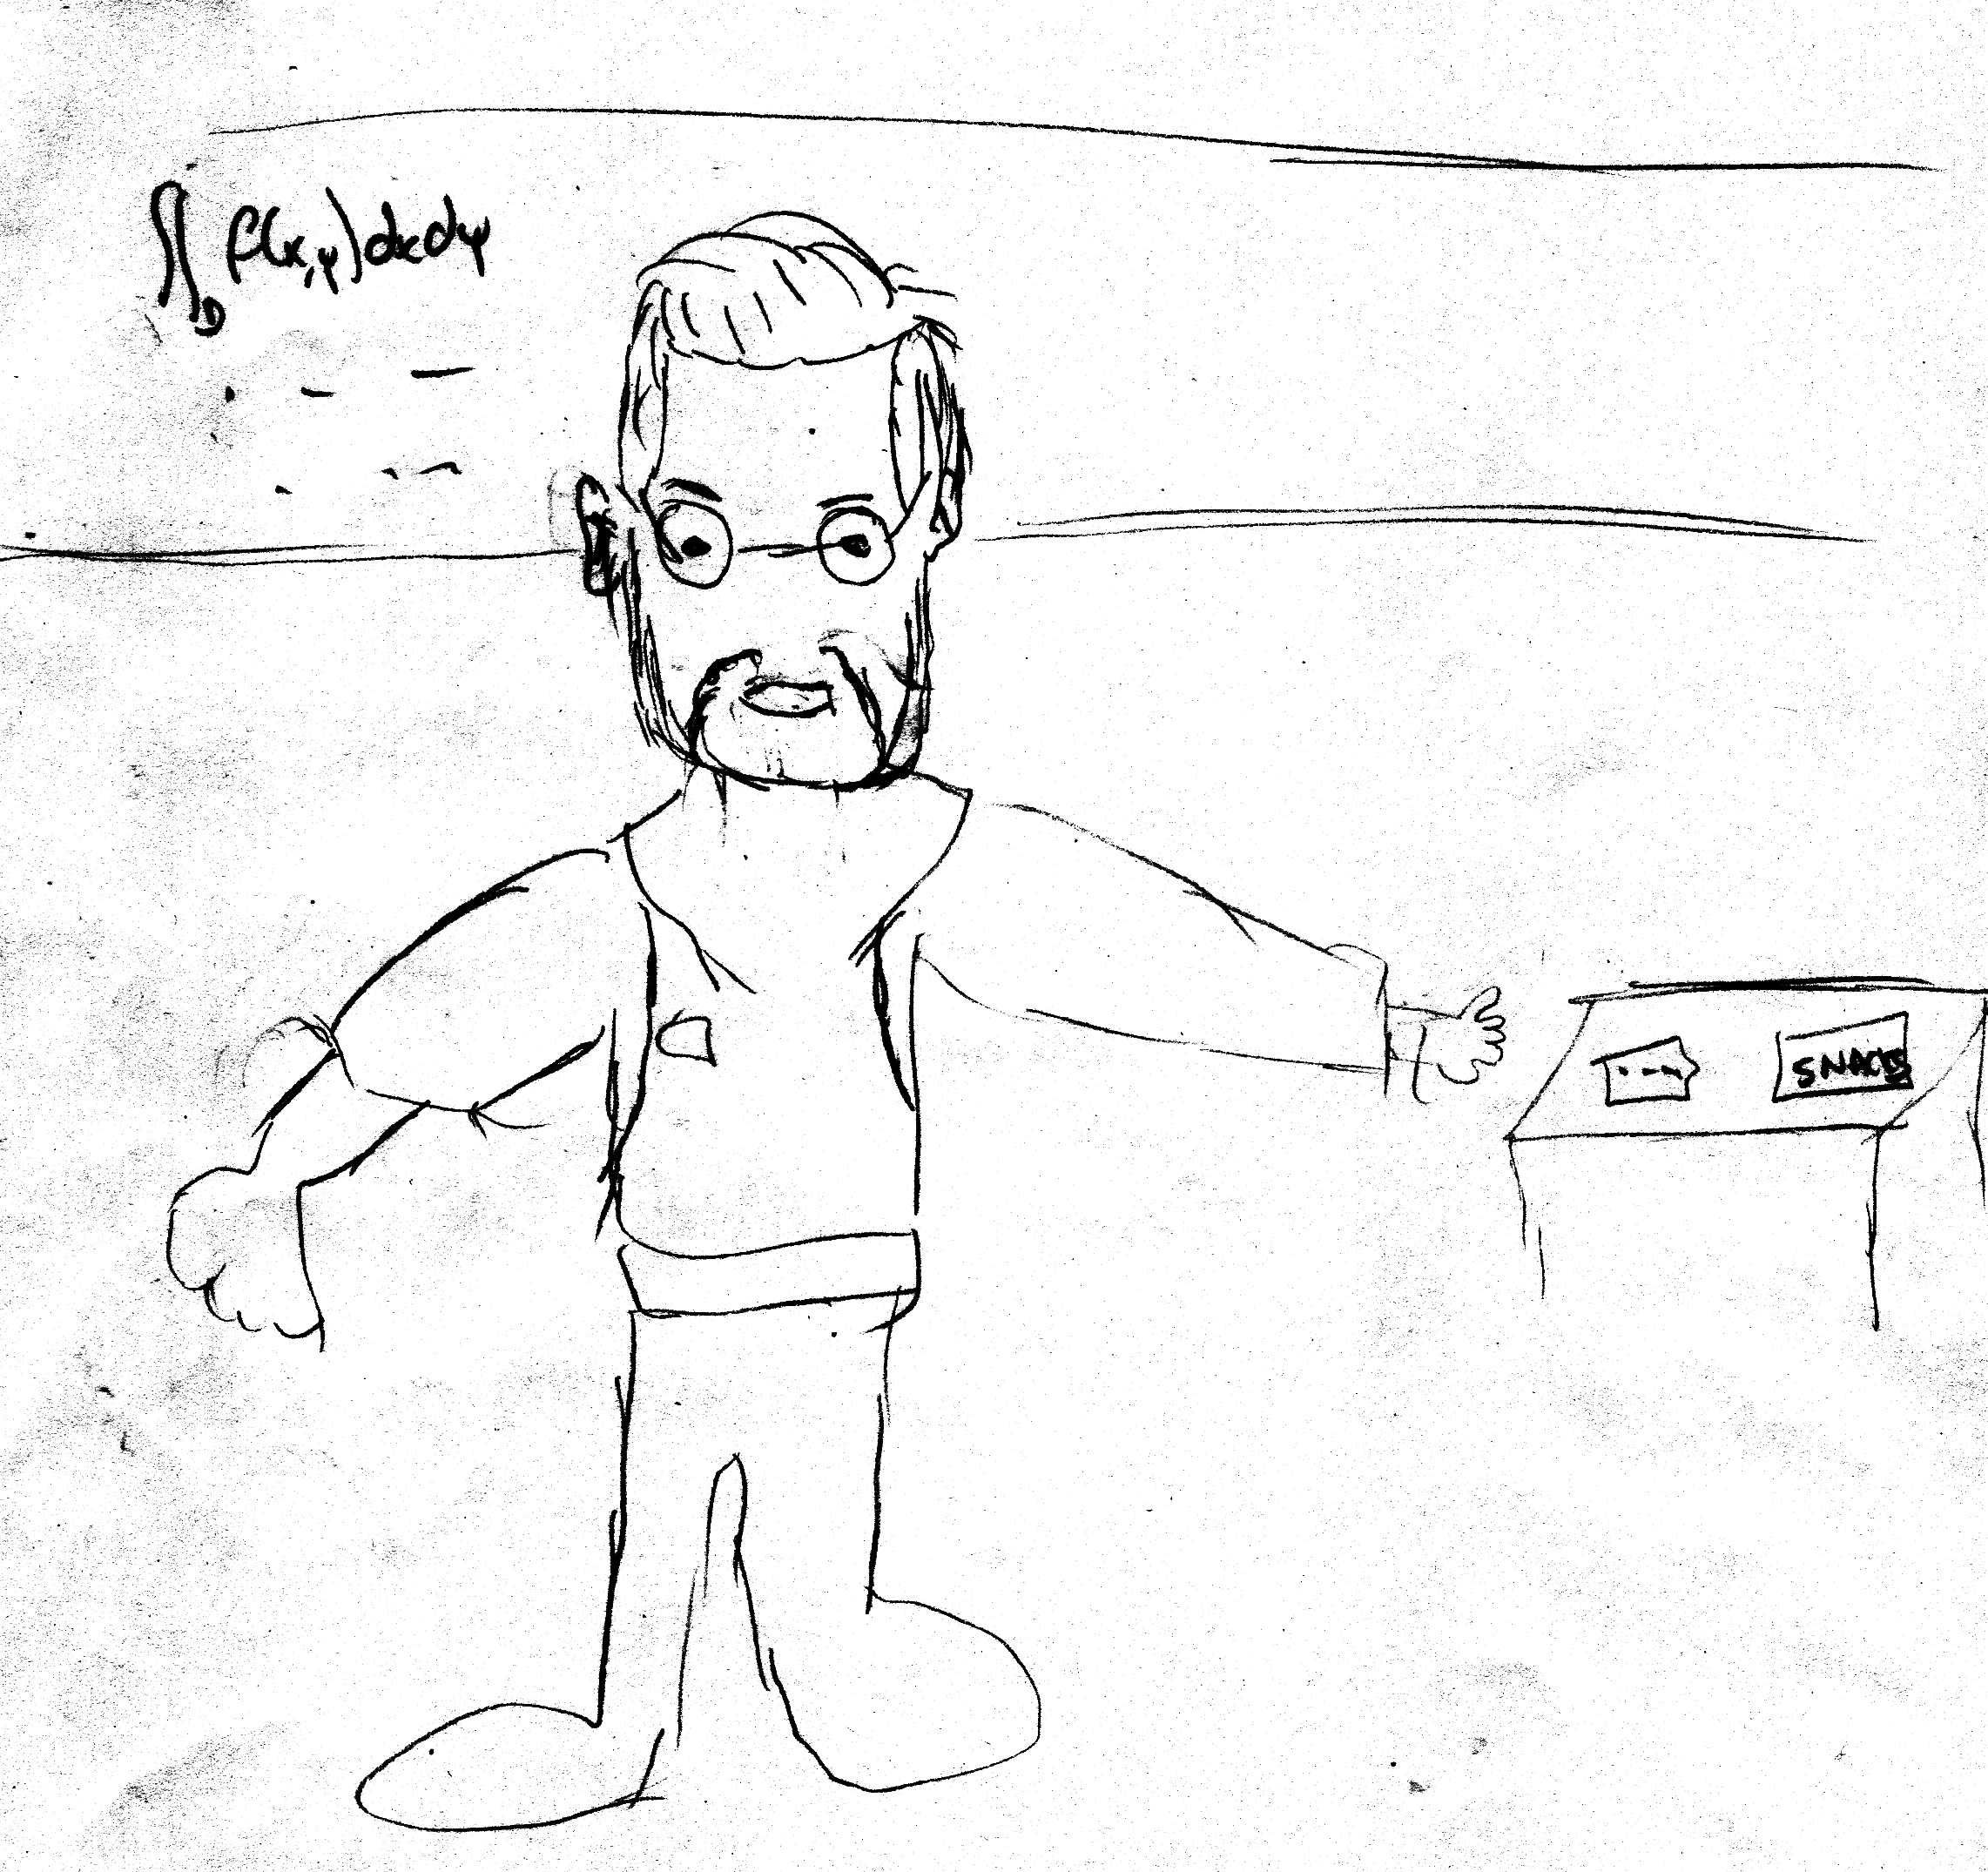 ∬_D f(x,y)dxdy
SNACKS